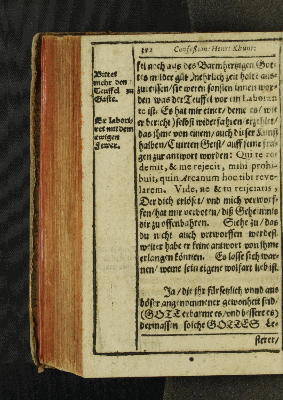 382 Confessium: Henr: Khunr:
Bittet
mehr den
Teuffel zu
Gaste.
Er labori-
ret mit dem
ewigen
Fewer.
fel noch aus des Barmhertzigen Got-
tes milder güt
zureissen/ sie weren sonsten innen wor-
den was der Teuffel vor im Laborio
te ist. Es hat mir einer/ deme es/ wie
er bericht/ selbst widerfahren/ erzehlet/
das ihme von einem/ auch dieser Kunst
halben/ Citirten Geist/ auff seine fra-
gen zur antwort worden: Qui te re-
demit, & me rejecit, mihi prohi-
buit, quin Arcanum hoc tibi reve-
larem. Vide, ne & tu reijciaris,
Der dich erlöset/ vnd mich verworf-
fen/ hat mir verboten/ diß Geheimnis
dir zu offenbahren. Siehe zu/ das
du nicht auch verworffen werdest.
weiter habe er keine antwort von ihme
erlangen können. Es lasse sich war-
nen/ weme sein eigene wolfart lieb ist.
Ja/ die ihr fürsetzlich vnnd aus
böser angenommener gewonheit seid/
(GOTT erbarme es/ vnd bessere es)
dermassen solche GOTTES Le-
sterer/